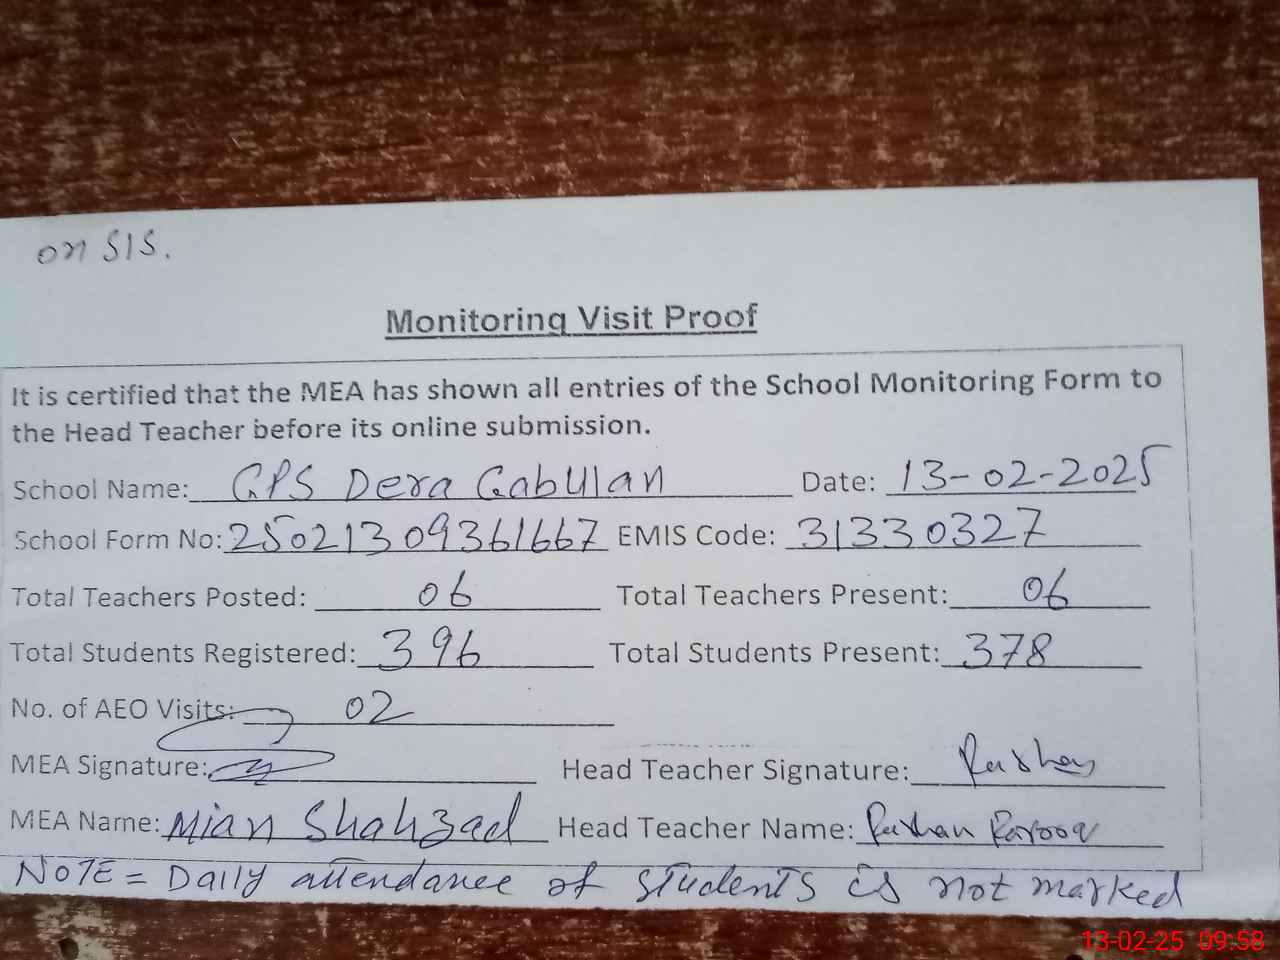 on SIS.
Monitoring Visit Proof
It is certified that the MEA has shown all entries of the School Monitoring Form to
the Head Teacher before its online submission.
School Name: GPS Dera Gabulan Date: 13-02-2025
School Form No: 25021309361667 EMIS Code: 31330327
Total Teachers Posted: 06 Total Teachers Present: 06
Total Students Registered: 396 Total Students Present: 378
No. of AEO Visits: 02
MEA Signature: Head Teacher Signature:
MEA Name: Mian Shahzad Head Teacher Name:
NOTE = Daily attendance of students is not marked
13-02-25 09:58